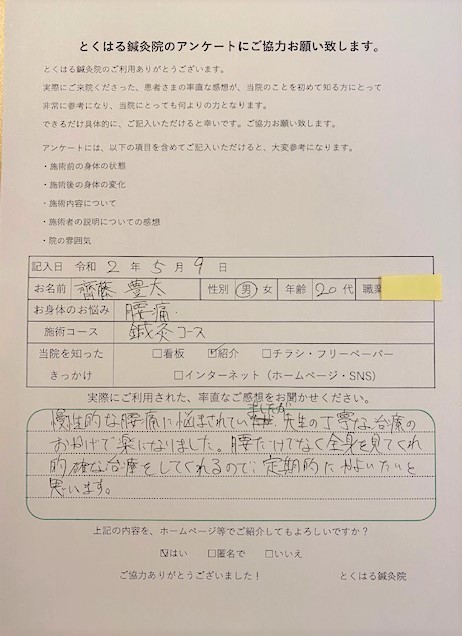 とくはる鍼灸院のアンケートにご協力お願い致します。
とくはる鍼灸院のご利用ありがとうございます。
実際にご来院くださった、患者さまの率直な感想が、当院のことを初めて知る方にとって
非常に参考になり、当院にとっても何よりの力となります。
できるだけ具体的に、ご記入いただけると幸いです。ご協力お願い致します。
アンケートには、以下の項目を含めてご記入いただけると、大変参考になります。
・施術前の身体の状態
・施術後の身体の変化
・施術内容について
・施術者の説明についての感想
・院の雰囲気
記入日 令和 2 年 5 月 9 日
お名前 齊藤 豊大 性別 男 女 年齢 20 代 職業
お身体のお悩み 腰痛
施術コース 鍼灸コース
当院を知った □看板 ☑紹介 □チラシ・フリーペーパー
きっかけ □インターネット（ホームページ・SNS）
実際にご利用された、率直なご感想をお聞かせください。
慢性的な腰痛に悩まされていましたが、先生の丁寧な治療の
おかげで楽になりました。腰だけでなく全身を見てくれ
的確な治療をしてくれるので、定期的にかよいたいと
思います。
上記の内容を、ホームページ等でご紹介してもよろしいですか？
☑はい □匿名で □いいえ
ご協力ありがとうございました！ とくはる鍼灸院